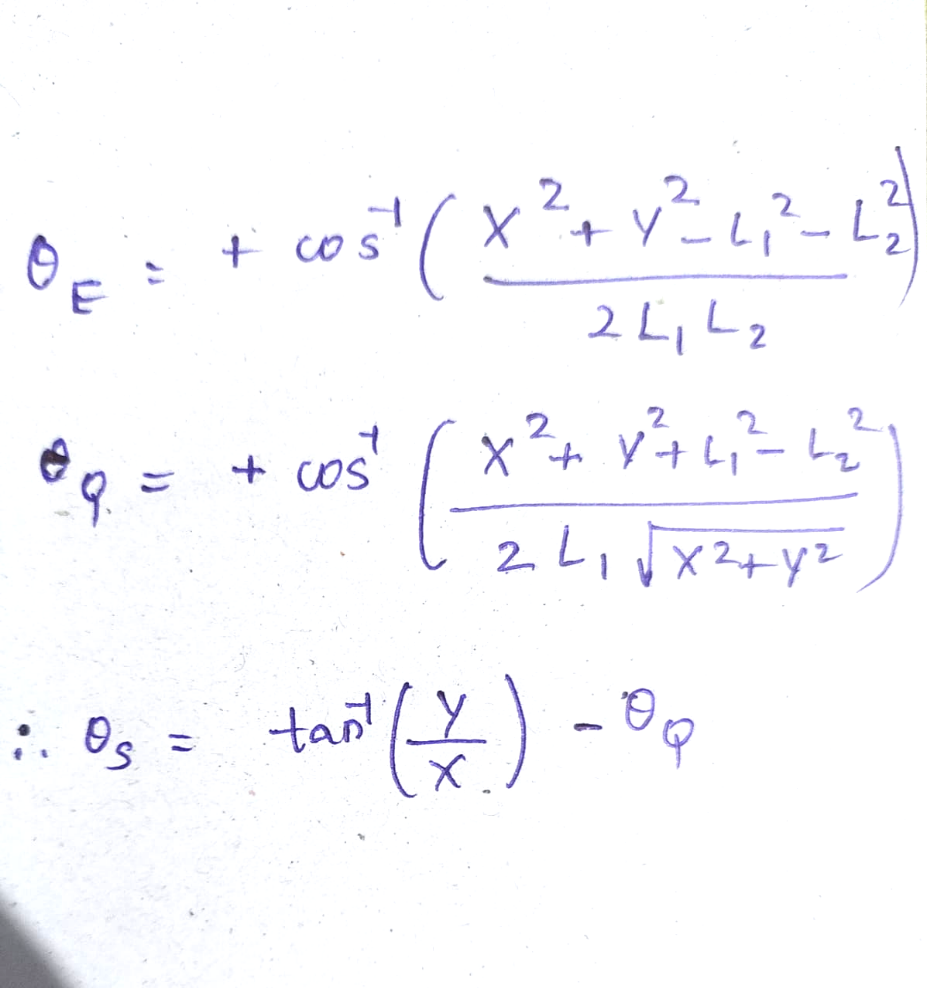 θ_E = + cos⁻¹ ( (X² + Y² - L₁² - L₂²) / (2 L₁ L₂) )
θ_Q = + cos⁻¹ ( (X² + Y² + L₁² - L₂²) / (2 L₁ √(X² + Y²)) )
∴ θ_S = tan⁻¹ ( Y / X ) - θ_Q